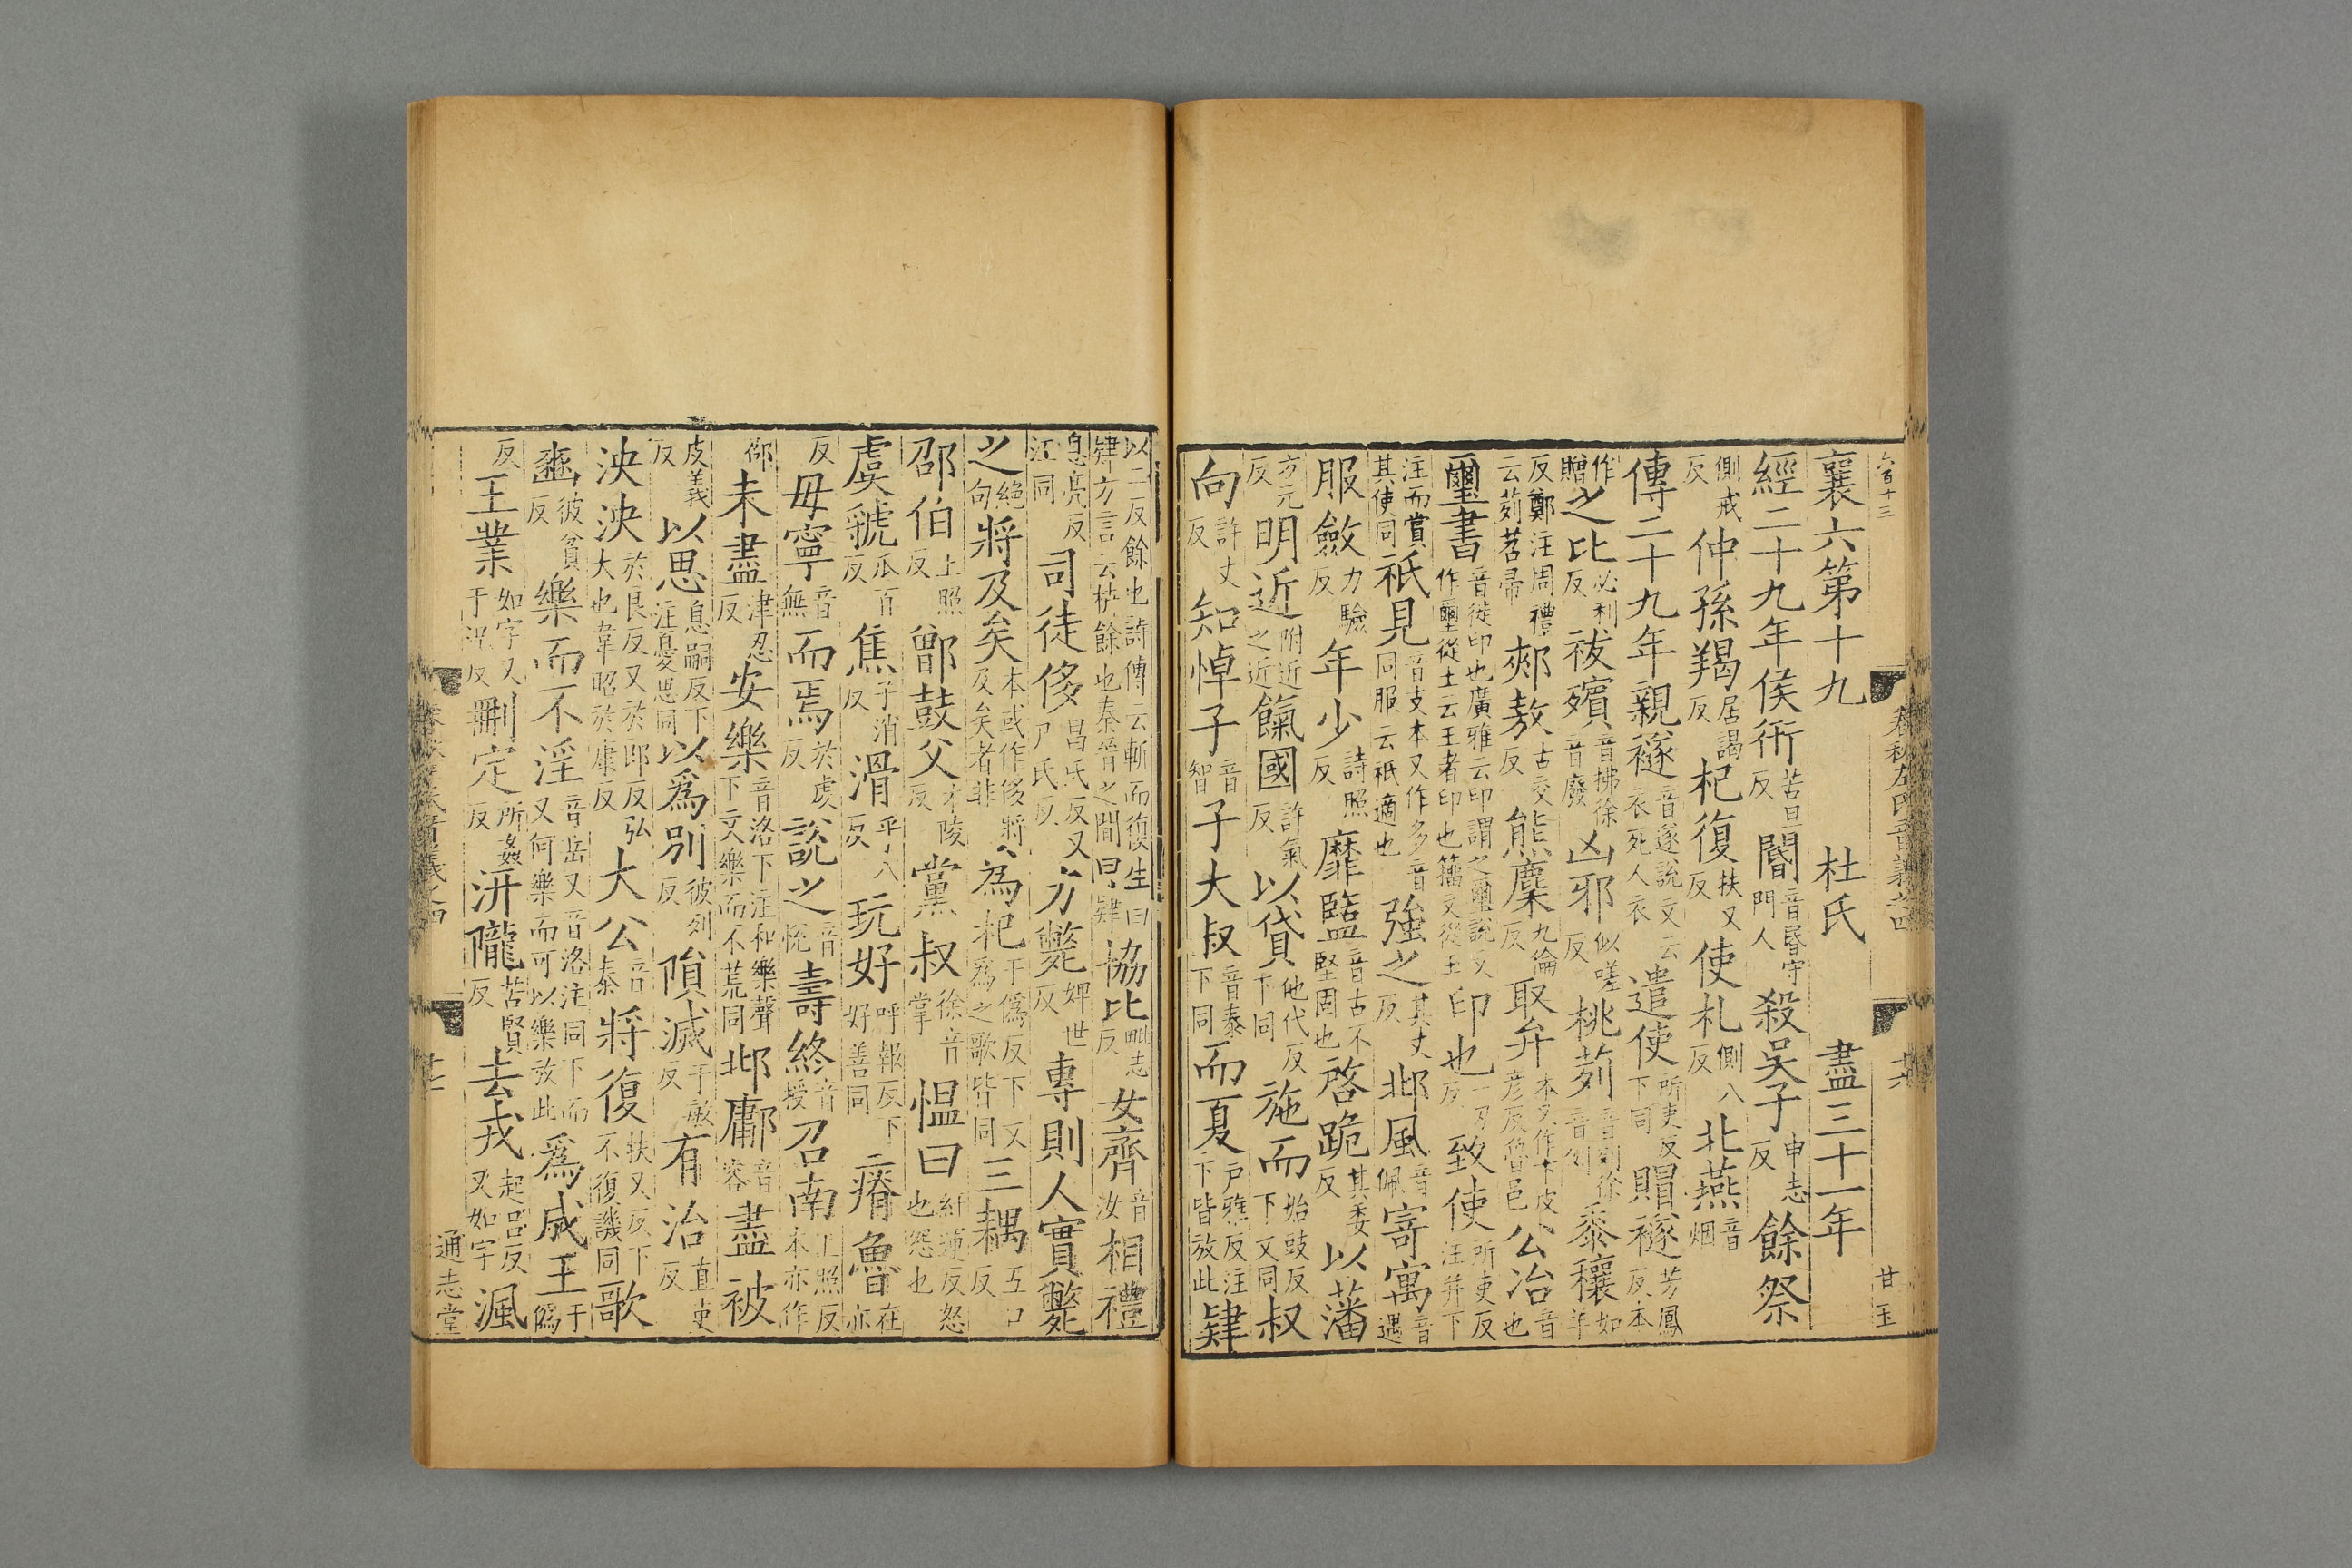 襄六第十九　杜氏　盡三十一年
經二十九年侯衎苦旦反閽音昏守門人殺吳子申志反餘祭
側戒反仲孫羯居謁反杞復扶又反使札側八反北燕音烟
傳二十九年親襚音遂說文云衣死人衣遣使所吏反下同賵襚芳鳳反本
作贈之比必利反祓殯音拂徐音廢凶邪似嗟反桃茢音列徐音例黍穰如羊
反鄭注周禮云茢苕帚郟敖古交反熊麇九倫反取弁本又作卞皮彥反魯邑公冶音也
璽書音徙印也廣雅云印謂之璽說文作壐從土云王者印也籀文從玉印也一刃反致使所吏反注并下
注而賞其使同祇見音支本又作多音同服云祇適也強之其丈反邶風音佩寄寓音遇
服斂力驗反年少詩照反靡盬音古不堅固也啓跪其委反以藩
方元反明近附近之近餼國許氣反以貸他代反下同施而始豉反下又同叔
向許丈反知悼子音智子大叔音泰下同而夏戶雅反注下皆放此肄
以二反餘也詩傳云斬而復生曰肄方言云枿餘也秦晉之間曰肄協比毗志反女齊音汝相禮
息亮反注同司徒侈昌氏反又尸氏反力斃婢世反專則人實斃
之絕句將及矣本或作侈將及矣者非為杞于僞反下文為之歌皆同三耦五口反
邵伯上照反鄫鼓父才陵反黨叔徐音掌愠曰紆運反怒也怨也
虞虢瓜百反焦子消反滑乎八反玩好呼報反下好善同瘠魯在亦
反毋寧音無而焉於虔反說之音悅壽終音授召南上照反本亦作
邵未盡津忍反安樂音洛下注和樂聲下文樂而不荒同邶鄘音容盡被
皮義反以思息嗣反下注憂思同以為別彼列反隕滅于敏反有治直吏反
泱泱於良反又於郎反弘大也韋昭於康反大公音泰將復扶又反下不復譏同歌
豳彼貧反樂而不淫音岳又音洛注同下而又何樂而可以樂放此為成王于僞
反王業如字又于況反刪定所姦反汧隴苦賢反去戎起呂反又如字渢
通志堂